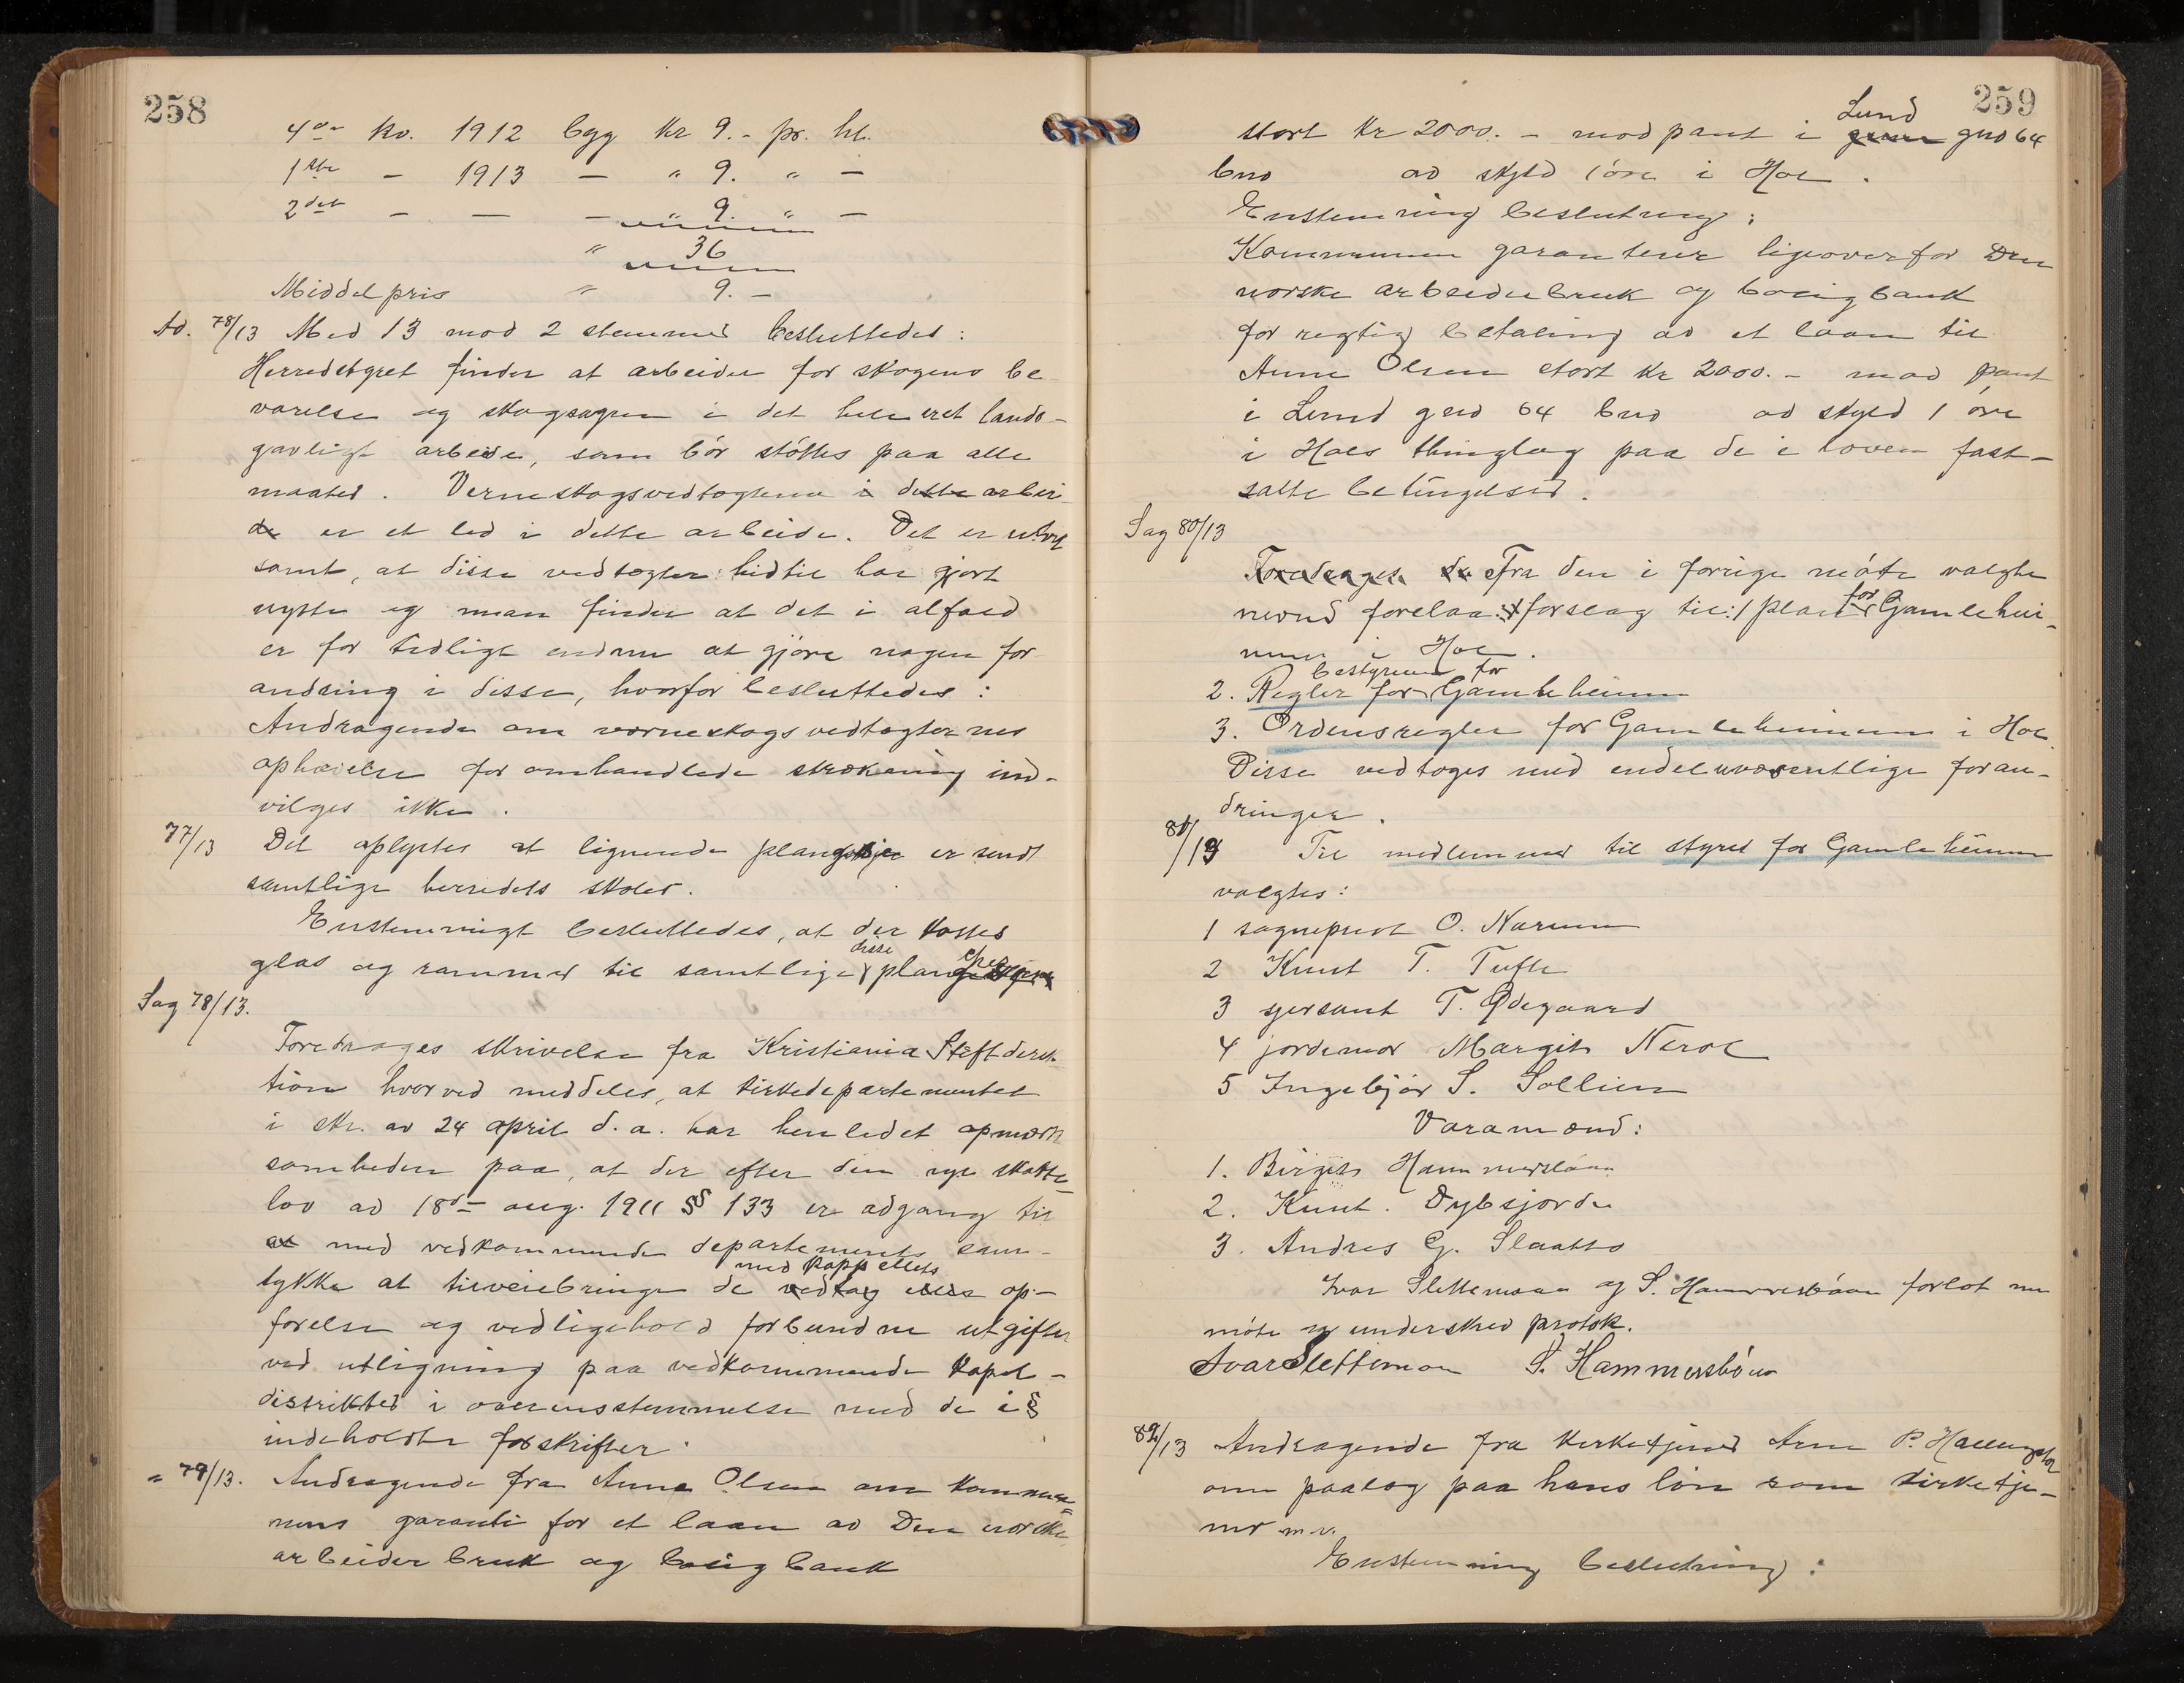 258
4de kv. 1912 bygg kr 9.- pr. hl.
1ste - 1913 - " 9. " -
2det - - - " 9. " -
" 36
Middelpris " 9. -
Ad. 78/13 Med 13 mod 2 stemmer besluttedes:
Herredstyret finder at arbeidet for skogens be
varelse og skogsagen i det hele er et lands-
gavnligt arbeide, som bør støttes paa alle
maater. Verneskogsvedtægterne i dette arbei-
de er et led i dette arbeide. Det er utvvl
somt, at disse vedtægter hidtil har gjort
nytte og man finder at det i alfald
er for tidligt endnu at gjøre nogen for
andring i disse, hvorfor besluttedes:
Andragende om verneskogsvedtægternes
ophævelse for omhandlede strækning ind-
vilges ikke.
77/13 Det oplystes at lignende plancher er sendt
samtlige herredets skoler.
Enstemmigt besluttedes, at der kostes
disse
glas og rammer til samtlige plancher
Sag 78/13.
Foredrages skrivelse fra Kristiania Stiftsdirek
tion hvorved meddeles, at kirkedepartementet
i skr. av 24 april d. a. har henledet opmerk
somheden paa, at der efter den nye skatte-
lov av 18de aug. 1911 §§ 133 er adgang til
at med vedkommende departements sam-
med kappellets
tykke at tilveiebringe de vedtag elses op-
førelse og vedligehold forbundne utgifter
ved utligning paa vedkommende kapel-
distrikter i overensstemmelse med de i §
indeholdte forskrifter.
" 79/13. Andragende fra Anne Olsen om kommu-
nens garanti for et laan av Den norske
arbeiderbruk og boligbank
259
Lund
stort kr 2000. - mod pant i gno 64
bno av skyld 1 øre i Hol.
Enstemmig beslutning:
Kommunen garanterer ligeoverfor Den
norske arbeiderbruk og boligbank
for rigtig betaling av et laan til
Anne Olsen stort kr 2000. - mod pant
i Lund gno 64 bno av skyld 1 øre
i Hols thinglag paa de i loven fast-
satte betingelser.
Sag 80/13
Foredrages de Fra den i forrige møte valgte
nevnd forelaa: 1 forslag til:/ plan for Gamlehei-
men i Hol.
bestyreren for
2. Regler for Gamleheimen
3. Ordensregler for Gamleheimen i Hol.
Disse vedtoges med endel uvæsentlige foran-
dringer.
81/13 Til medlemmer til styret for Gamleheimen
valgtes:
1 sogneprest O. Narum
2 Knut T. Tufte
3 sersant T. Ødegaard
4 jordemor Margit Nerol
5 Ingebjør S. Sollien
Varamænd:
1. Birgit Hammersbøen
2. Knut. Dybsjorde
3. Andres G. Slaatto
Ivar Slettemoen og S. Hammersbøen forlot nu
møte og underskrev protok.
Ivar Slettemoen S. Hammersbøen
82/13 Andragende fra kirketjener Arne P. Hallingstad
om paalæg paa hans løn som kirketje-
ner m.v.
Enstemmig beslutning: